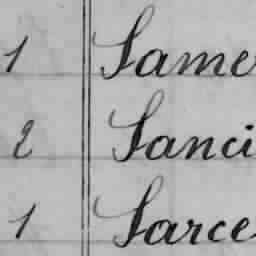 1 Same
2 Sanci
1 Sarce